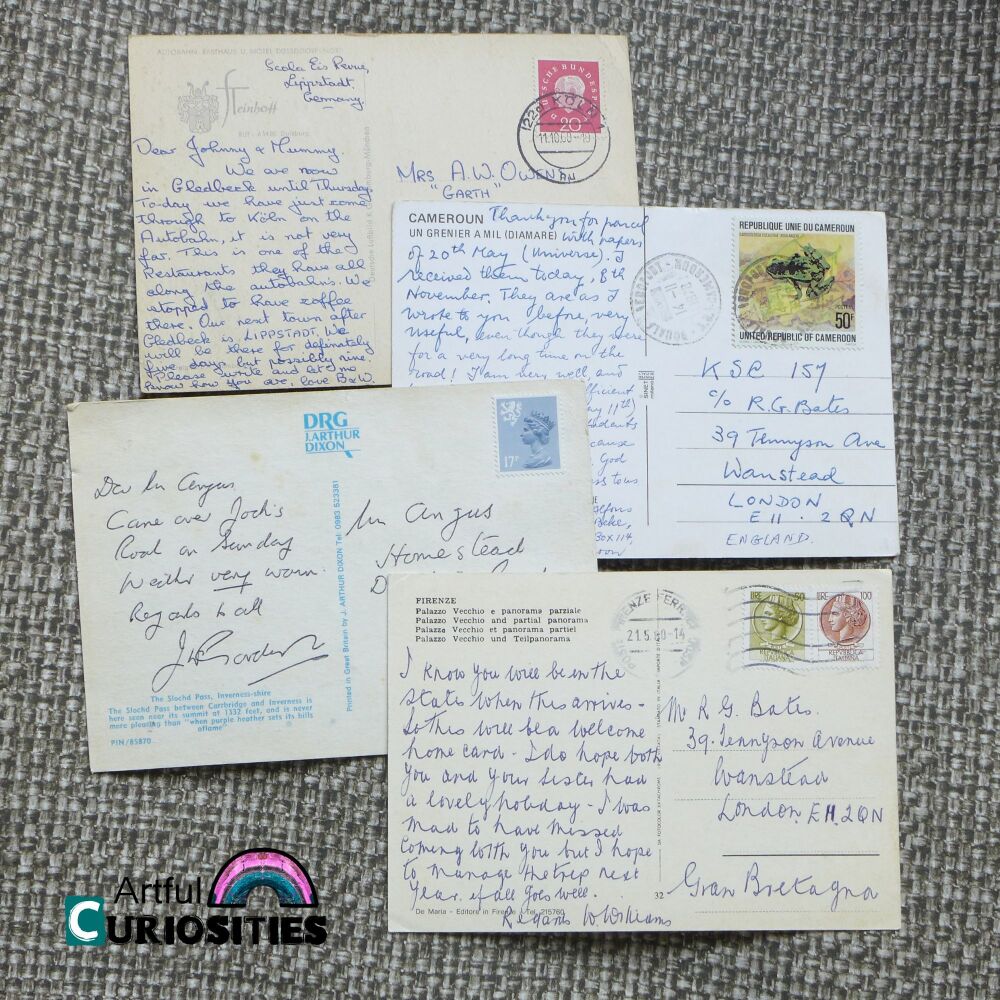 AUTOBAHN RASTHAUS U. MOTEL DÜSSELDORF-NORD
Scola Eis Revue,
Lippstadt.
Germany.
Steinhoff
Duisburg
DEUTSCHE BUNDESPOST
20
KÖLN
11.10.60
Dear Johnny & Mummy
We are now
in Gledbeck until Thursday
To-day we have just come
through to Köln on the
Autobahn, it is not very
far. This is one of the
Restaurants they have all
along the autobahns. We
stopped to have coffee
there. Our next town after
Gledbeck is LIPPSTADT. We
will be there for definitely
five days but possibly nine.
Please write and let me
know how you are, love B&W.
MRS A.W. OWEN
"GARTH"
CAMEROUN
UN GRENIER A MIL (DIAMARE)
Thank you for parcel
with papers
of 20th May (Universe). I
received them today, 8th
November. They are as I
wrote to you before, very
useful, even though they were
for a very long time on the
road! I am very well, and
fficient
ay 11th)
udents
cause
God
ss tows
REPUBLIQUE UNIE DU CAMEROUN
50F
UNITED REPUBLIC OF CAMEROON
KSC 157
c/o R.G. Bates
39 Tennyson Ave
Wanstead
LONDON
E11. 2QN
ENGLAND.
DRG
J.ARTHUR
DIXON
17P
Dear Mr Angus
Came over Jock's
Road on Sunday
Weather very warm.
Regards to all
Mr Angus
Homestead
Printed in Great Britain by J. ARTHUR DIXON Tel: 0983 523381
The Slochd Pass, Inverness-shire
The Slochd Pass between Carrbridge and Inverness is
here seen near its summit at 1332 feet, and is never
more pleasing than "when purple heather sets its hills
aflame"
PIN/85870
FIRENZE
Palazzo Vecchio e panorama parziale
Palazzo Vecchio and partial panorama
Palazzo Vecchio et panorama partiel
Palazzo Vecchio und Teilpanorama
FIRENZE FERROVIA
21.5.80-14
LIRE 50
LIRE 100
REPUBBLICA ITALIANA
I know you will be in the
States when this arrives -
So this will be a welcome
home card - I do hope both
you and your sister had
a lovely holiday - I was
mad to have missed
coming with you but I hope
to manage the trip next
year. if all goes well.
Regards W. Williams
De Maria - Editore in Firenze - Tel. 215760
32
Mr R G. Bates
39. Tennyson Avenue
Wanstead
London. E11. 2QN
Gran Bretagna
Artful
CURIOSITIES